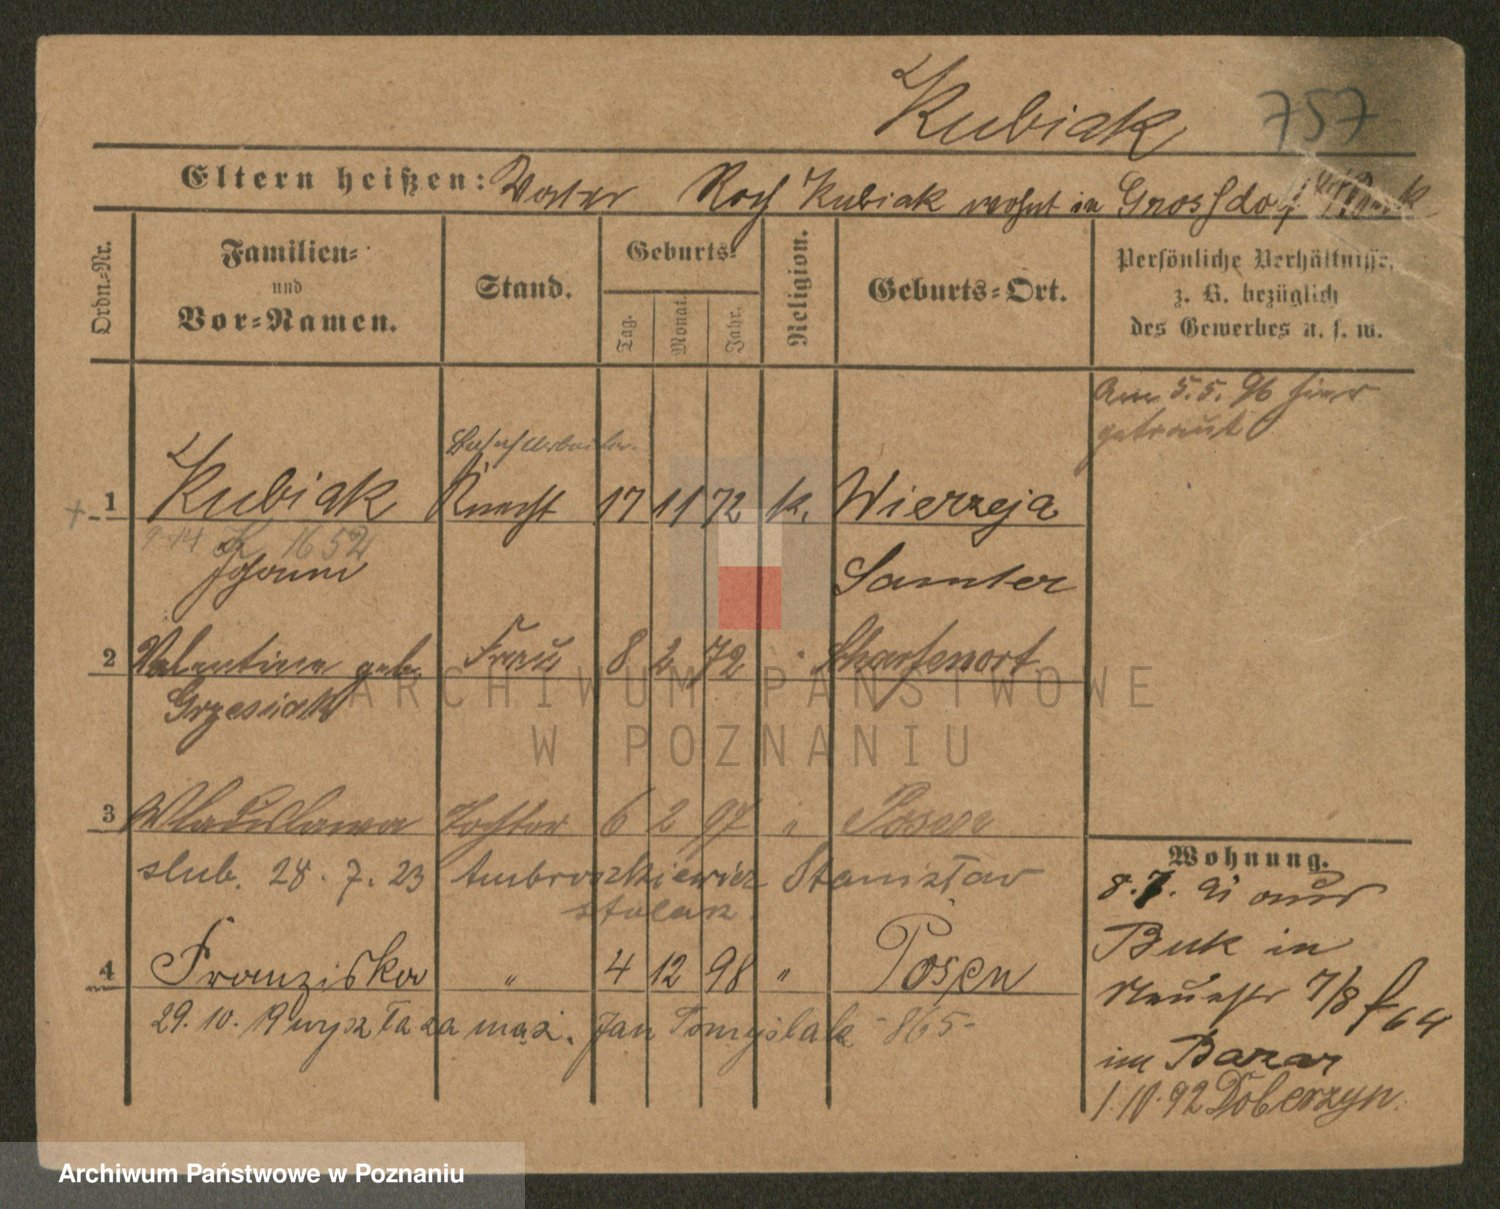 Kubiak 757
Eltern heißen: Vater Roch Kubiak wohnt in Grossdorf
Ordn.-Nr.
Familien-
und
Vor-Namen.
Stand.
Geburts-
Tag.
Monat.
Jahr.
Religion.
Geburts-Ort.
Persönliche Verhältnisse,
z. B. bezüglich
des Gewerbes u. s. w.
Am 5.5.96 hier
getraut
1 Kubiak Knecht 17 11 72 k. Wierzeja
1652
Johann Samter
2 Valentine geb. Frau 8 2 72 Scharfenort
Grzesiak
3 Wladislawa Tochter 6 2 97 " Posen
slub. 28.7.23 Ambroszkiewicz Stanisław
stolarz.
4 Franziska " 4 12 98 " Posen
29.10.19 wyszła za mąż. Jan Tomyślak -865-
Wohnung.
8.7.91 aus
Buk in
7/8 64
im Bazar
1.IV.92 Doberzyn.
ARCHIWUM PAŃSTWOWE
W POZNANIU
Archiwum Państwowe w Poznaniu